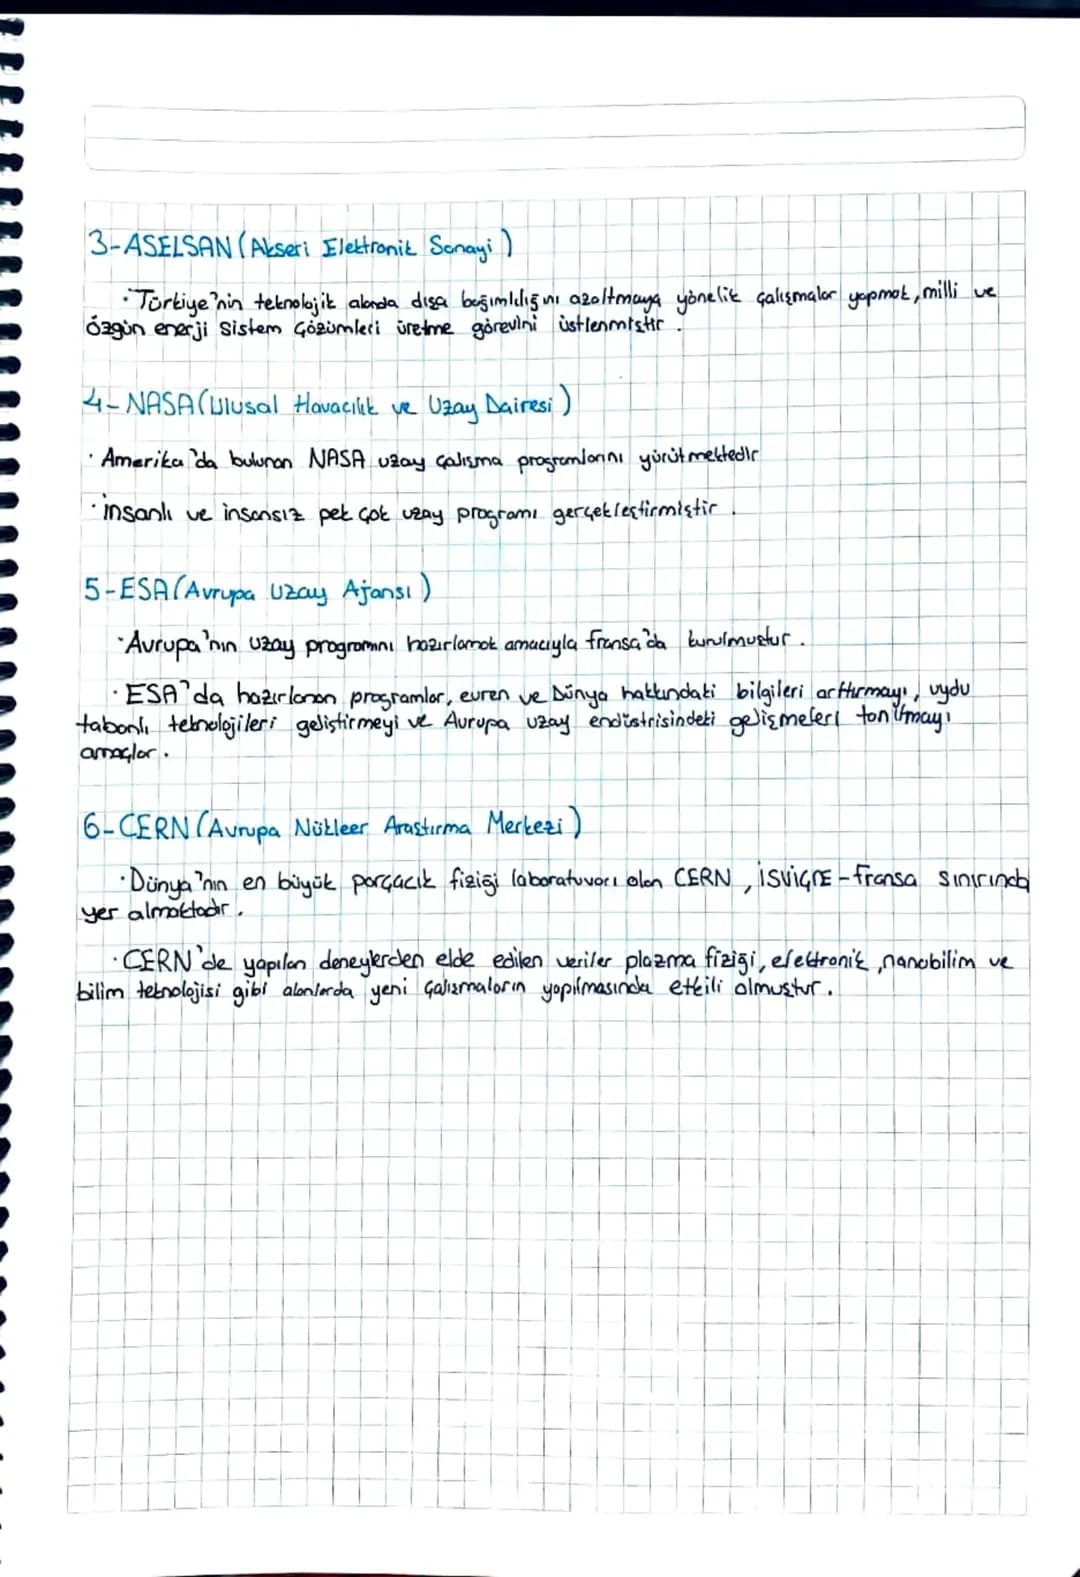 3-ASELSAN (Akseri Elektronik Sanayi)
· Türkiye'nin teknolojik alanda dışa bağımlılığını azaltmaya yönelik çalışmalar yapmak, milli ve
özgün enerji sistem çözümleri üretme görevini üstlenmiştir.
4- NASA (Ulusal Havacılık ve Uzay Dairesi)
· Amerika'da bulunan NASA uzay çalışma programlarını yürütmektedir
· insanlı ve insansız pek çok uzay programı gerçekleştirmiştir.
5-ESA (Avrupa Uzay Ajansı)
· Avrupa'nın uzay programını hazırlamak amacıyla fransa'da kurulmuştur.
· ESA'da hazırlanan programlar, evren ve Dünya hakkındaki bilgileri arttırmayı, uydu
tabanlı teknolojileri geliştirmeyi ve Avrupa uzay endüstrisindeki gelişmeleri tanıtmayı
amaçlar.
6-CERN (Avrupa Nükleer Araştırma Merkezi)
· Dünya'nın en büyük parçacık fiziği laboratuvarı olan CERN, İSVİÇRE-fransa sınırında
yer almaktadır.
· CERN'de yapılan deneylerden elde edilen veriler plazma fiziği, elektronik, nanobilim ve
bilim teknolojisi gibi alanlarda yeni çalışmaların yapılmasında etkili olmuştur.